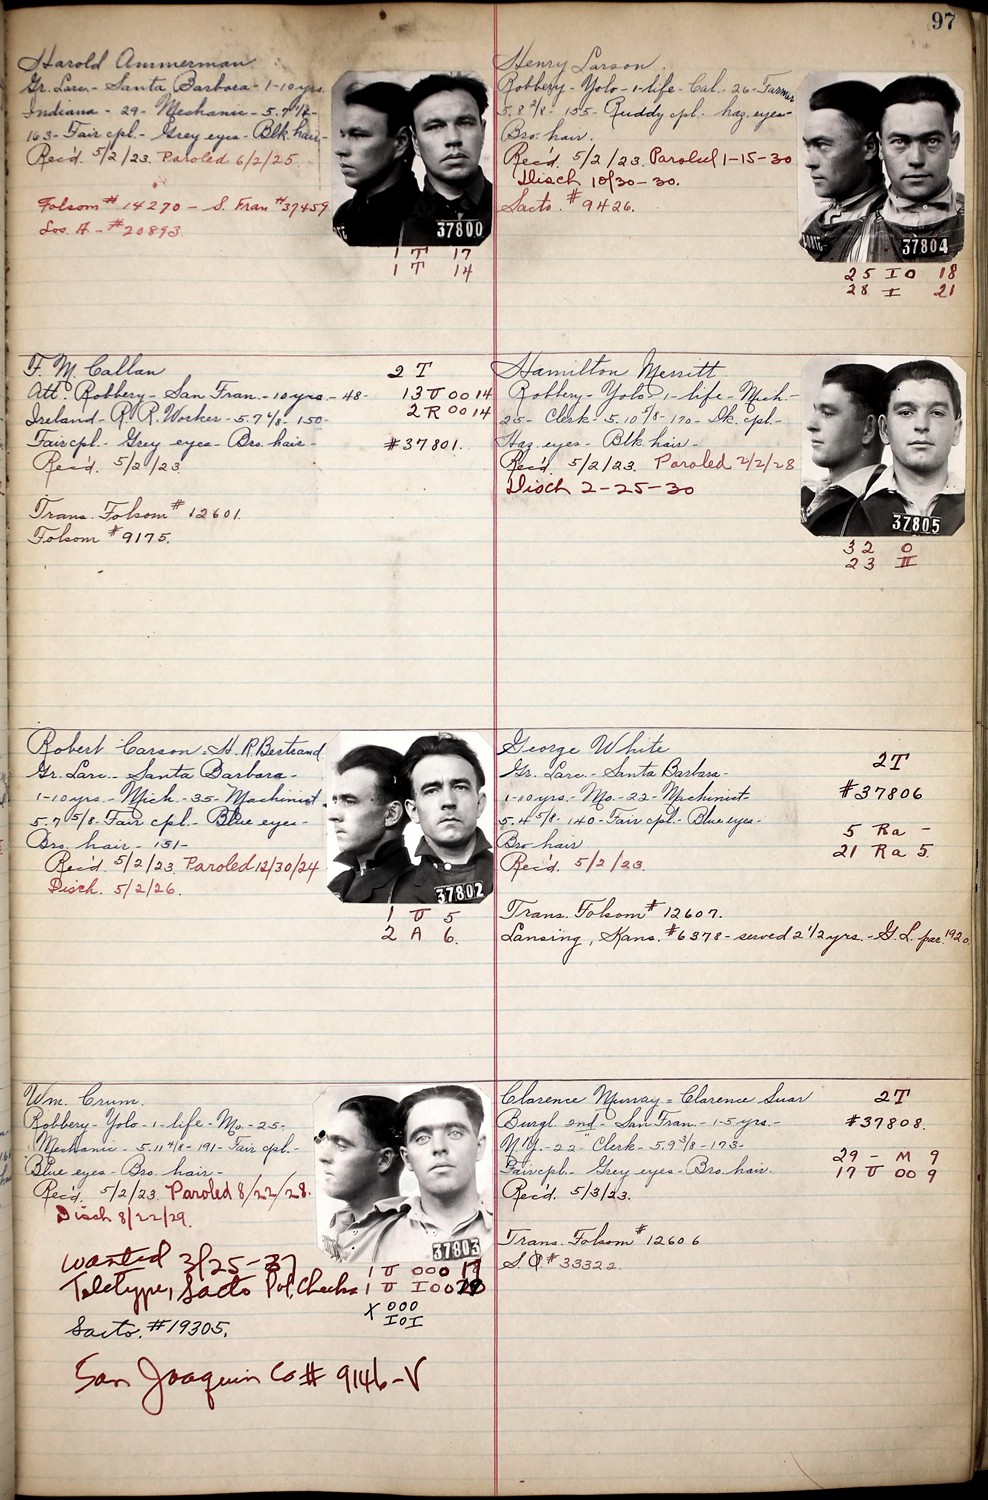 97
Harold Ammerman
Gr. Larc.- Santa Barbara- 1-10 yrs.
Indiana - 29- Mechanic- 5.
163- Fair cpl.- Grey eyes- Blk hair-
Rec'd. 5/2/23. Paroled 6/2/25.
Folsom # 14270 - S. Fran #37459
Los A - #20893
37800
1 T 17
1 T 14
F. M. Callan
Att. Robbery- San Fran.- 10 yrs.- 48-
Ireland- R.R. Worker- 5.7 4/8- 150-
Fair cpl.- Grey eyes- Bro. hair-
Rec'd. 5/2/23.
Trans. Folsom # 12601.
Folsom # 9175.
2 T
13 U 00 14
2 R 00 14
#37801.
Robert Carson = H. R. Bertrand
Gr. Larc.- Santa Barbara-
1-10 yrs.- Mich.- 35- Machinist.
5.7 5/8- Fair cpl.- Blue eyes-
Bro. hair - 151-
Rec'd. 5/2/23 Paroled 12/30/24
Disch. 5/2/26.
37802
1 U 5
2 A 6.
Wm. Crum.
Robbery- Yolo- 1-life- Mo.- 25-
Mechanic- 5.11 4/8- 191- Fair cpl.-
Blue eyes- Bro. hair-
Rec'd. 5/2/23. Paroled 8/22/28.
Disch 8/22/29.
37803
Wanted 3/25-37
Teletype, Sacto Pol, Checks
1 U 000
1 U I00
X 000
IOI
Sacto. #19305.
San Joaquin Co # 9146-V
Henry Larson.
Robbery- Yolo- 1-life- Cal.- 26- Farmer
5.8 2/8- 155- Ruddy cpl.- haz. eyes-
Bro. hair.
Rec'd. 5/2/23. Paroled 1-15-30
Disch 10/30-30.
Sacto. # 9426.
37804
25 IO 18
28 I 21
Hamilton Merritt
Robbery- Yolo- 1-life- Mich.-
25- Clerk- 5.10 4/8- 170- Dk. cpl.-
Haz. eyes- Blk. hair-
Rec'd. 5/2/23. Paroled 2/2/28
Disch 2-25-30
37805
32 O
23 II
George White
Gr. Larc.- Santa Barbara-
1-10 yrs.- Mo.- 22- Machinist-
5.4 5/8- 140- Fair cpl.- Blue eyes-
Bro hair
Rec'd. 5/2/23.
Trans. Folsom # 12607.
Lansing, Kans. #6378- served 2 1/2 yrs.- G.L. par. 1920.
2T
#37806
5 Ra -
21 Ra 5.
Clarence Murray = Clarence Suar
Burgl. 2nd- San Fran.- 1-5 yrs.-
N.Y.- 22- Clerk- 5.9 3/8- 173-
Fair cpl.- Grey eyes- Bro. hair.
Rec'd. 5/3/23.
Trans. Folsom # 12606
S.Q # 33322.
2T
#37808.
29 - M 9
17 U 00 9